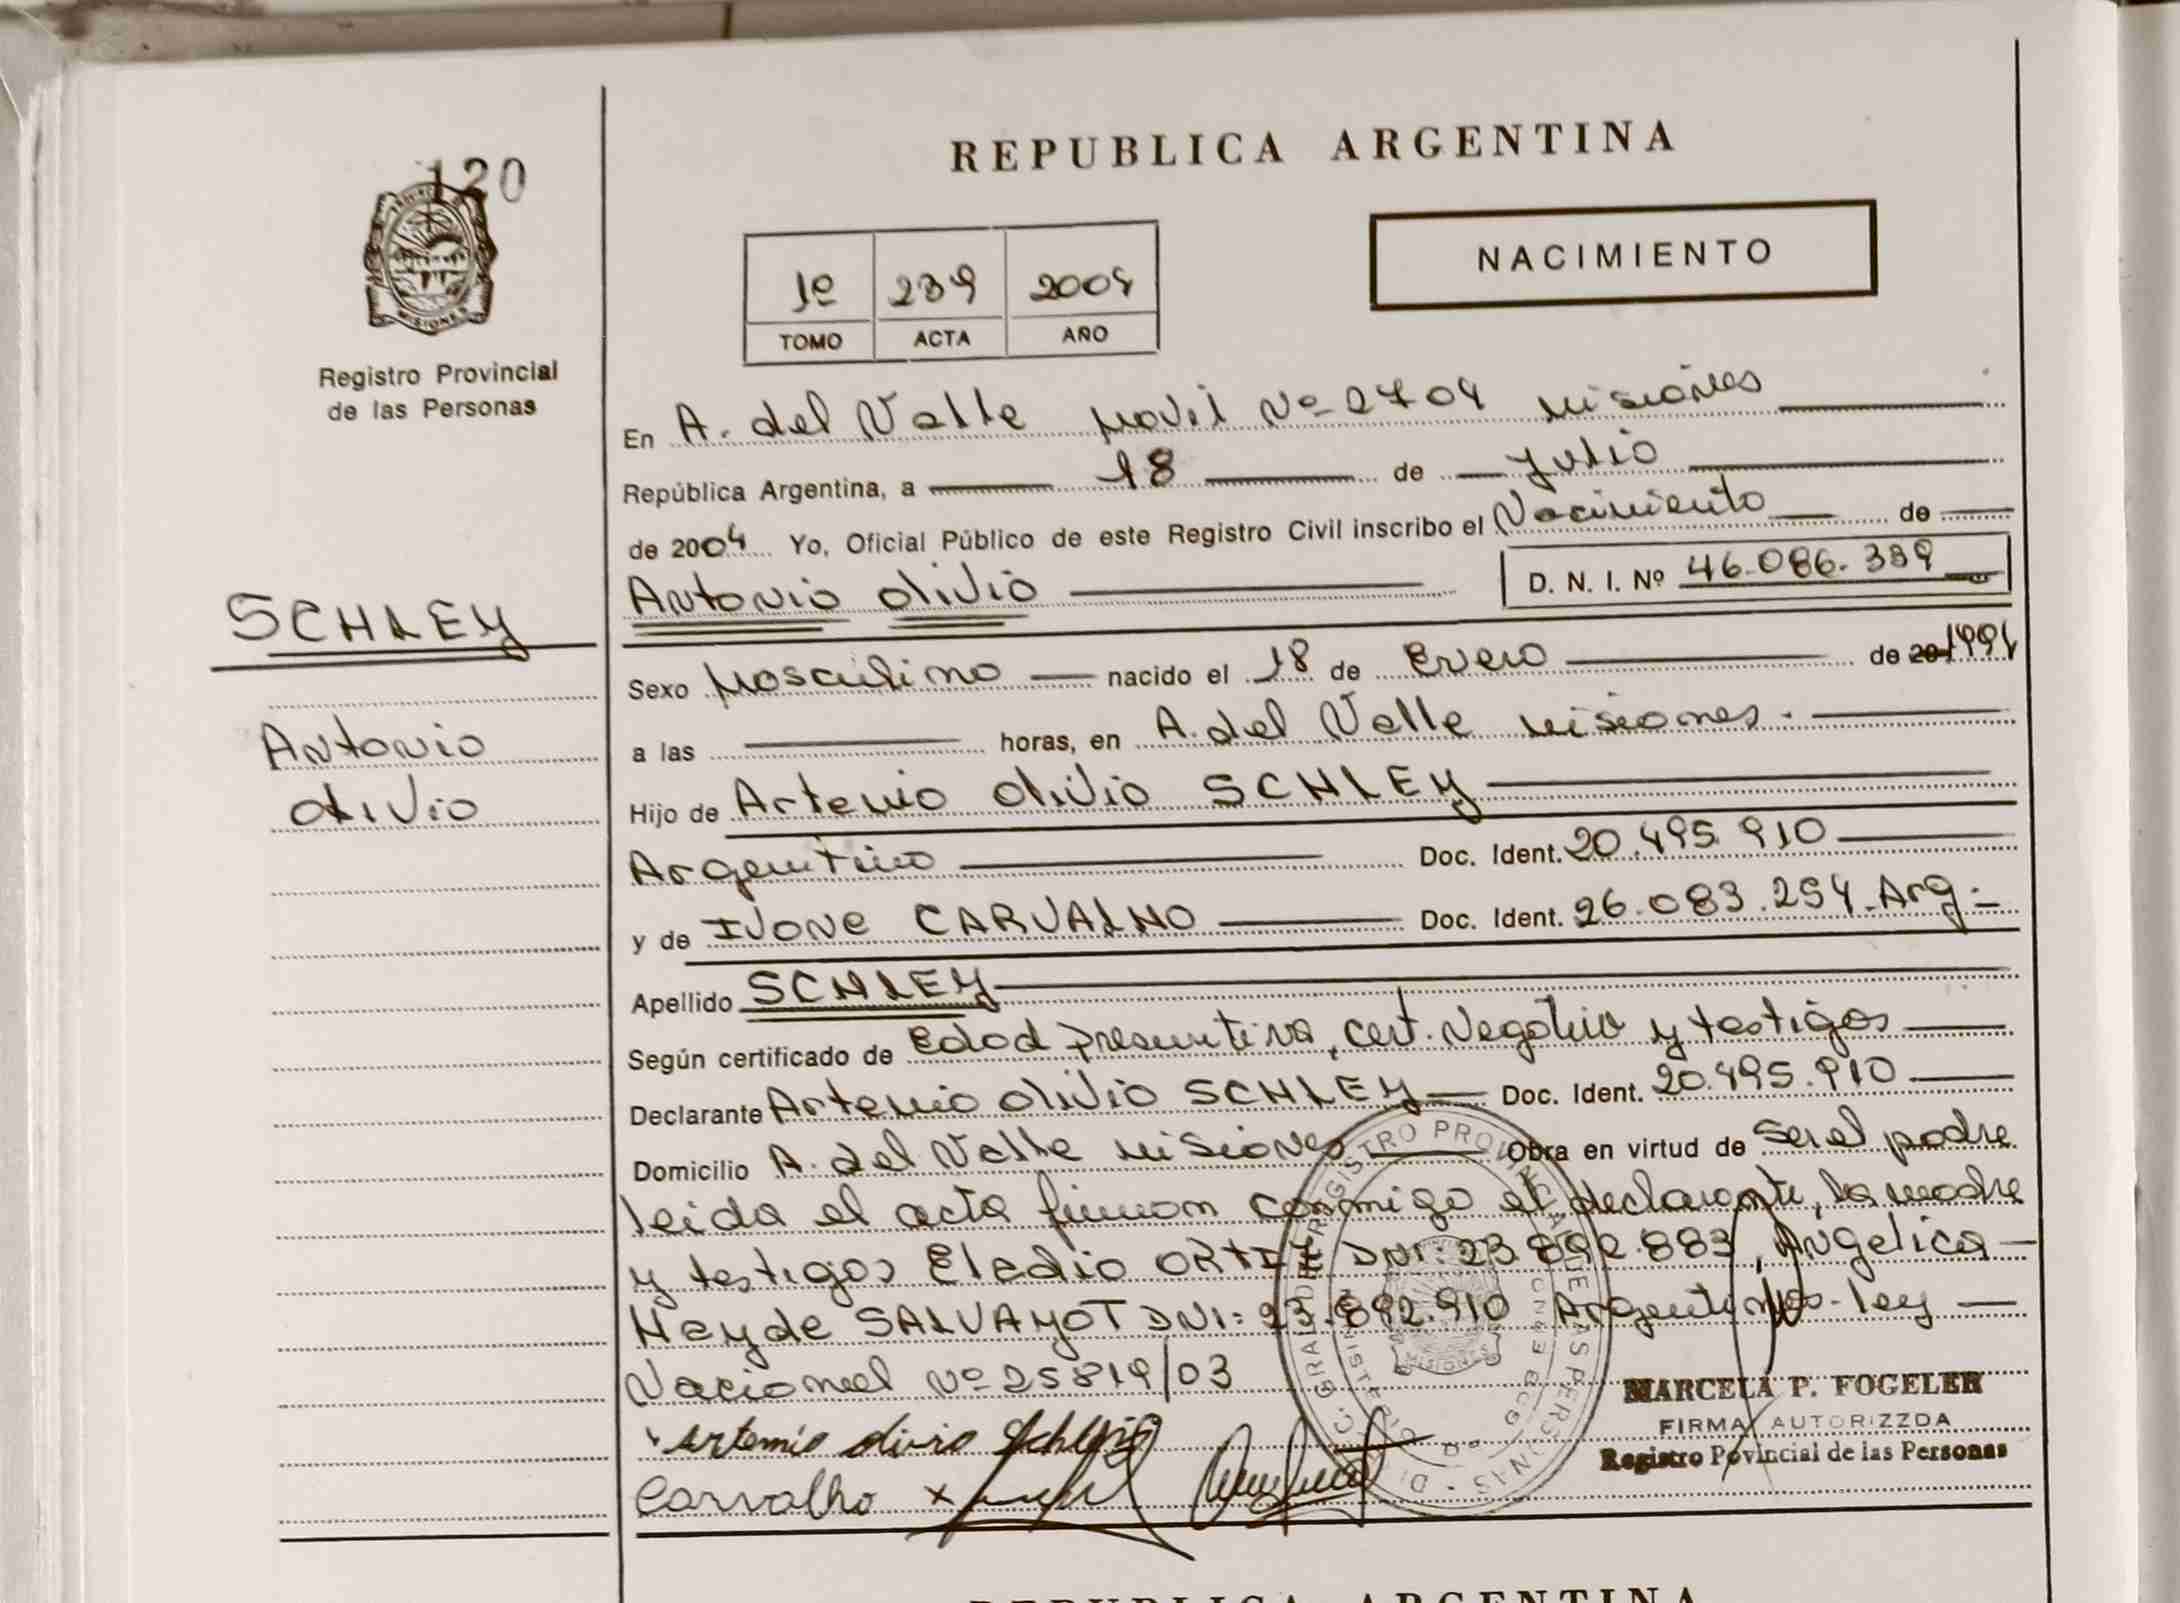 120
MISIONES
Registro Provincial
de las Personas
SCHLEY
Antonio
olivio
REPUBLICA ARGENTINA
NACIMIENTO
1º 239 2004
TOMO ACTA AÑO
En A. del Valle Movil Nº 2704 Misiones
República Argentina, a 18 de Julio
de 2004 Yo, Oficial Público de este Registro Civil inscribo el Nacimiento de
Antonio olivio D. N. I. Nº 46.086.339
Sexo Masculino nacido el 18 de Enero de 20 1991
a las horas, en A. del Valle Misiones.
Hijo de Artemio olivio SCHLEY
Argentino Doc. Ident. 20.495.910
y de IVONE CARVALHO Doc. Ident. 26.083.254 Arg.
Apellido SCHLEY
Según certificado de Edad presuntiva, cert. Negativo y testigos
Declarante Artemio olivio SCHLEY Doc. Ident. 20.495.910
Domicilio A. del Valle Misiones Obra en virtud de Ser el padre
leida el acta firman conmigo el declarante, la madre
y testigos Eladio ORTIZ DNI: 23.892.883, Angelica
Heyde SALVAYOT DNI: 23.892.910 Argentinos - ley
Nacional Nº 25819/03
MARCELA P. FOGELER
FIRMA AUTORIZZDA
Registro Povincial de las Personas
Artemio olivio Schley
Carvalho x
REPUBLICA ARGENTINA